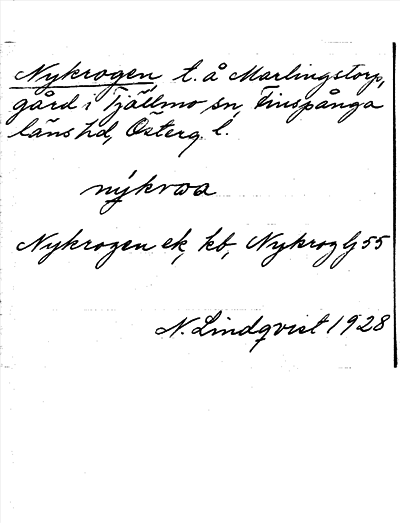 Nykrogen t. å Marlingstorp,
gård i Tjällmo sn, Finspånga
läns hd, Österg. l.
nýkrωa
Nykrogen ek, kb, Nykrog Lj 55
N. Lindqvist 1928